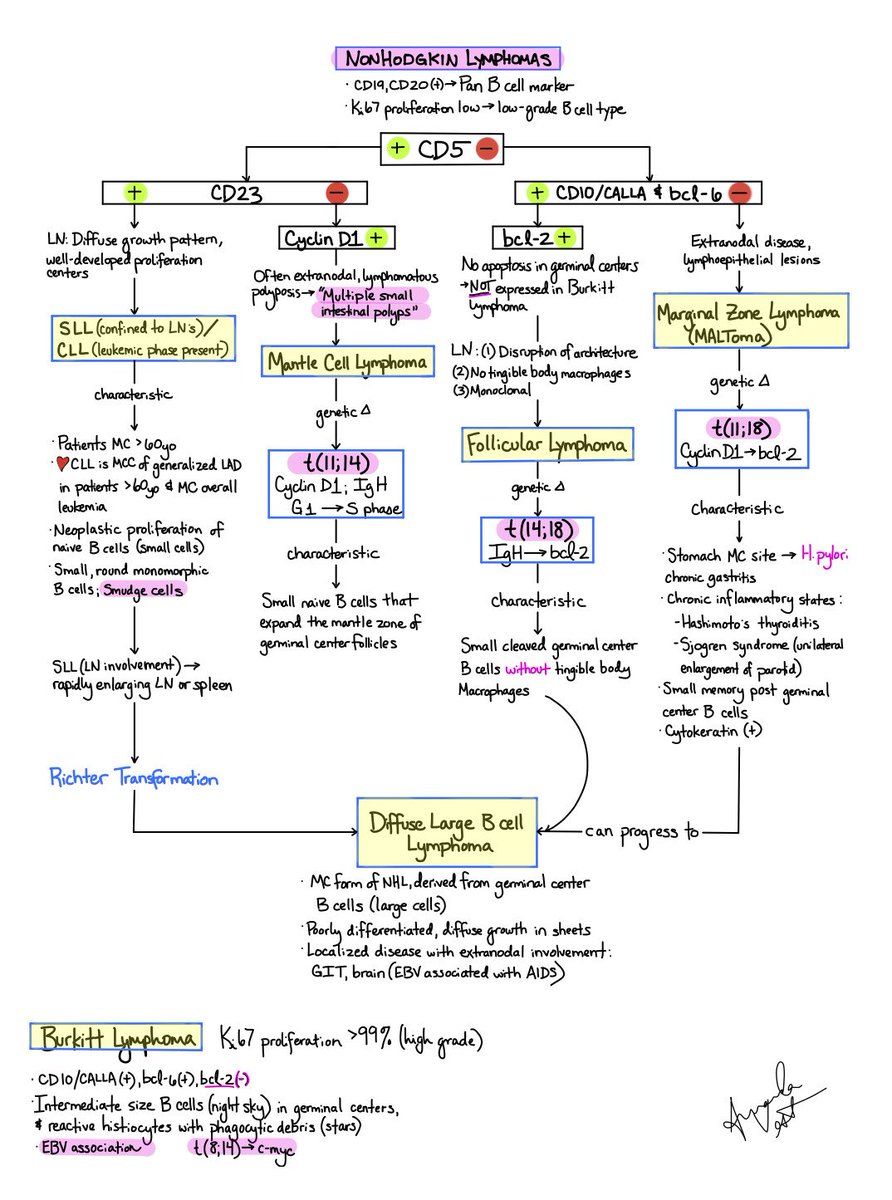 NONHODGKIN LYMPHOMAS
· CD19, CD20 (+) → Pan B cell marker
· Ki67 proliferation low → low-grade B cell type
+ CD5 −
+ CD23 −
LN: Diffuse growth pattern,
well-developed proliferation
centers
SLL (confined to LN's) /
CLL (leukemic phase present)
characteristic
· Patients MC >60yo
· ♥CLL is MCC of generalized LAD
in patients >60yo & MC overall
leukemia
· Neoplastic proliferation of
naive B cells (small cells)
· Small, round monomorphic
B cells; Smudge cells
SLL (LN involvement) →
rapidly enlarging LN or spleen
Richter Transformation
Cyclin D1 +
Often extranodal, lymphomatous
polyposis → "Multiple small
intestinal polyps"
Mantle Cell Lymphoma
genetic Δ
t(11;14)
Cyclin D1; IgH
G1 → S phase
characteristic
Small naive B cells that
expand the mantle zone of
germinal center follicles
+ CD10/CALLA & bcl-6 −
bcl-2 +
No apoptosis in germinal centers
→ NOT expressed in Burkitt
lymphoma
LN: (1) Disruption of architecture
(2) No tingible body macrophages
(3) Monoclonal
Follicular Lymphoma
genetic Δ
t(14;18)
IgH → bcl-2
characteristic
Small cleaved germinal center
B cells without tingible body
Macrophages
Extranodal disease,
lymphoepithelial lesions
Marginal Zone Lymphoma
(MALToma)
genetic Δ
t(11;18)
Cyclin D1 → bcl-2
Characteristic
· Stomach MC site → H.pylori
chronic gastritis
· Chronic inflammatory states:
-Hashimoto's thyroiditis
-Sjogren syndrome (unilateral
enlargement of parotid)
· Small memory post germinal
center B cells
· Cytokeratin (+)
can progress to
Diffuse Large B cell
Lymphoma
· MC form of NHL, derived from germinal center
B cells (large cells)
· Poorly differentiated, diffuse growth in sheets
· Localized disease with extranodal involvement:
GIT, brain (EBV associated with AIDS)
Burkitt Lymphoma Ki67 proliferation >99% (high grade)
· CD10/CALLA (+), bcl-6 (+), bcl-2 (-)
· Intermediate size B cells (night sky) in germinal centers,
& reactive histiocytes with phagocytic debris (stars)
· EBV association t(8;14) → c-myc